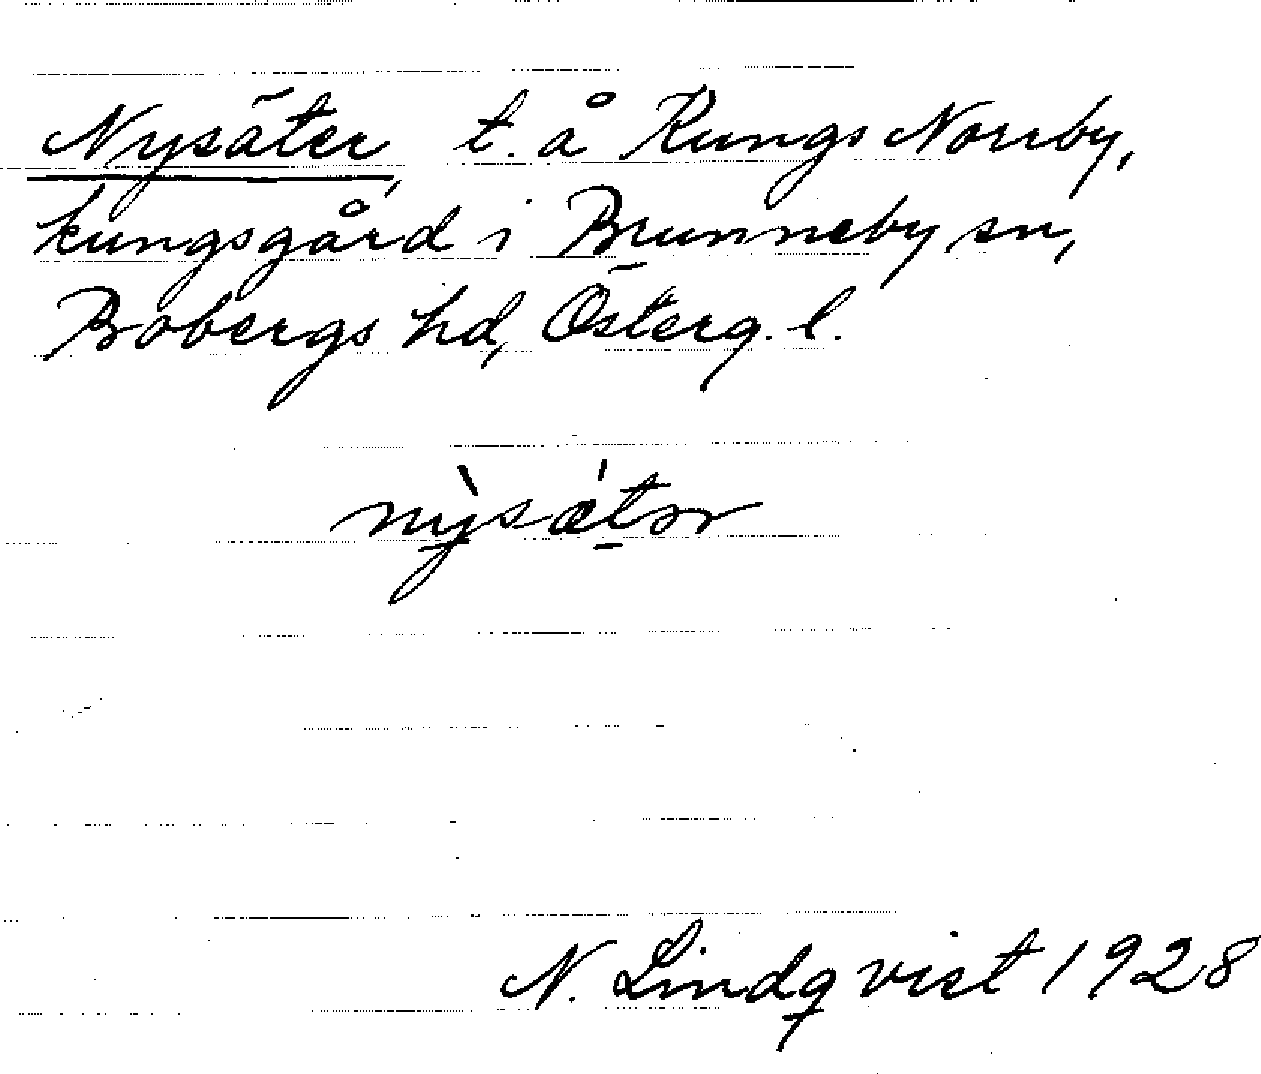 Nysäter, t. å Kungs Norrby,
kungsgård i Brunneby sn,
Bobergs hd, Österg. l.
nỳsǽtər
N. Lindqvist 1928